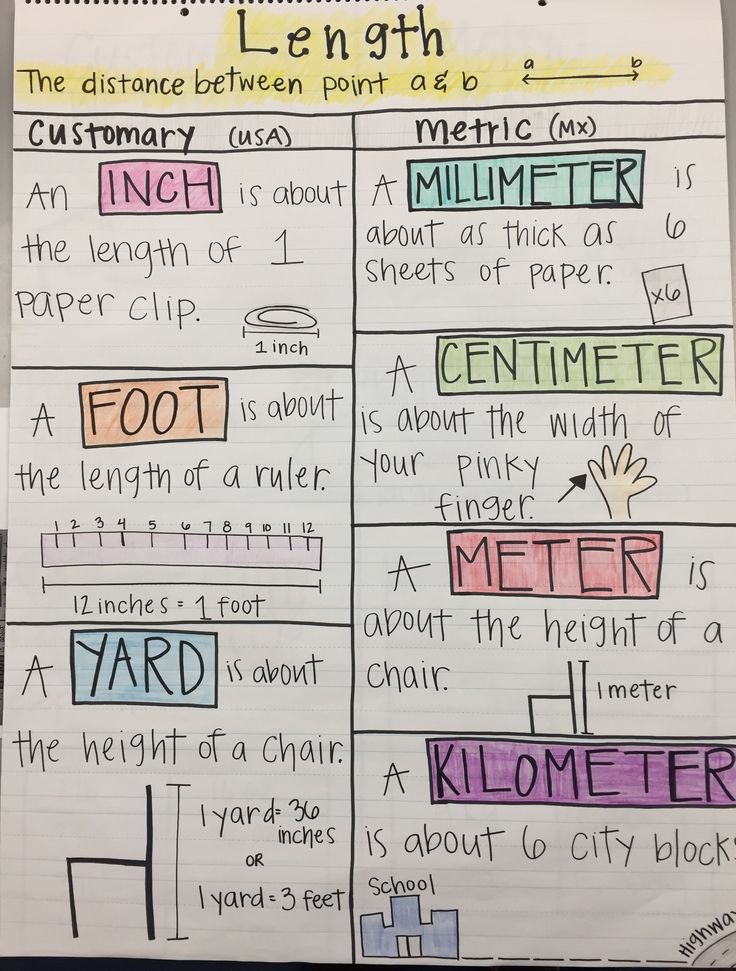 Length
The distance between point a & b
a b
Customary (USA)
An INCH is about
the length of 1
paper clip.
1 inch
A FOOT is about
the length of a ruler.
1 2 3 4 5 6 7 8 9 10 11 12
12 inches = 1 foot
A YARD is about
the height of a chair.
1 yard = 36
inches
OR
1 yard = 3 feet
Metric (MX)
A MILLIMETER is
about as thick as 6
sheets of paper.
x6
A CENTIMETER
is about the width of
your pinky
finger.
A METER is
about the height of a
chair.
1 meter
A KILOMETER
is about 6 city blocks
School
Highway